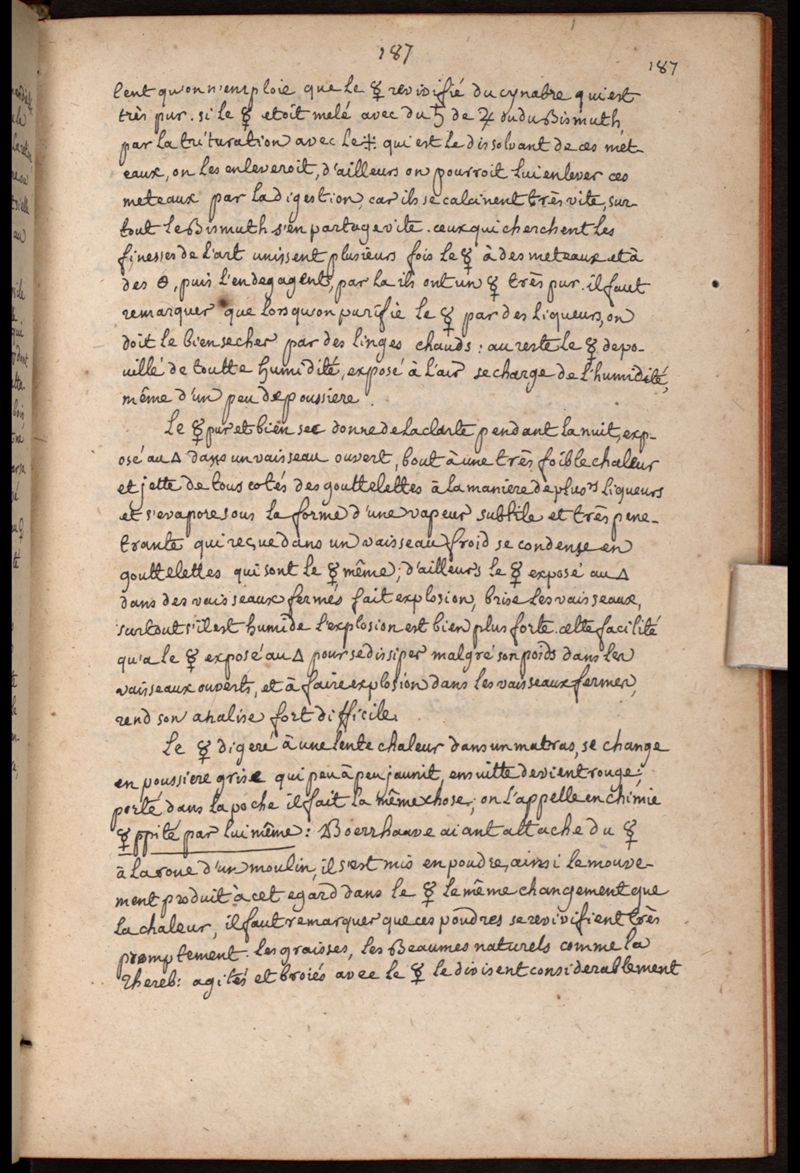 187
187
lent qu'on n'emploie que le ☿ revivifié du cynabre qui est
très pur. si le ☿ etoit melé avec du ♄ de ♃ du du Bismuth,
par la trituration avec le ⁜ qui est le dissolvant de ces mét-
eaux, on les enleveroit, d'ailleurs on pourroit lui enlever ces
meteaux par la digestion, car ils se calcinent très vite, sur-
tout le Bismuth s'en partage vite. ceux qui cherchent les
finesses de l'art unissent plusieurs fois le ☿ à des meteaux et à
des 🜔, puis l'en degagent, par la ils ont un ☿ très pur. il faut
remarquer que lorsqu'on purifie le ☿ par des liqueurs, on
doit le bien secher par des linges chauds: au reste le ☿ depo-
uillé de toutte humidité, exposé à l'air se charge de l'humidité,
même d'un peu de poussiere.
Le ☿ pur et bien sec donne de la clarté pendant la nuit, exp-
osé au 🜂 dans un vaisseau ouvert, bout à une très foible chaleur
et jette de tous cotés des gouttelettes à la maniere de plusrs liqueurs
et s'evapore sous la forme d'une vapeur subtile et très pene-
trante qui reçue dans un vaisseau froid se condense en
gouttelettes qui sont le ☿ même; d'ailleurs le ☿ exposé au 🜂
dans des vaisseaux fermés fait explosion, brise les vaisseaux,
surtout s'il est humide l'explosion est bien plus forte. cette facilité
qu'a le ☿ exposé au 🜂 pour se dissiper malgré son poids dans les
vaisseaux ouverts, et à faire explosion dans les vaisseaux fermés,
rend son analise fort difficile.
Le ☿ digeré à une lente chaleur dans un matras, se change
en poussiere grise qui peu à peu jaunit, ensuitte devient rouge;
porté dans la poche il fait la même chose; on l'appelle en chimie
☿ ppité par lui même: Boerrhaave aiant attaché du ☿
à la roue d'un moulin, il s'est mis en poudre, ainsi le mouve-
ment produit à cet egard dans le ☿ le même changement que
la chaleur, il faut remarquer que ces poudres se revivifient très
promptement. les graisses, les Beaumes naturels comme la
thereb: agités et broiés avec le ☿ le divisent considerablement